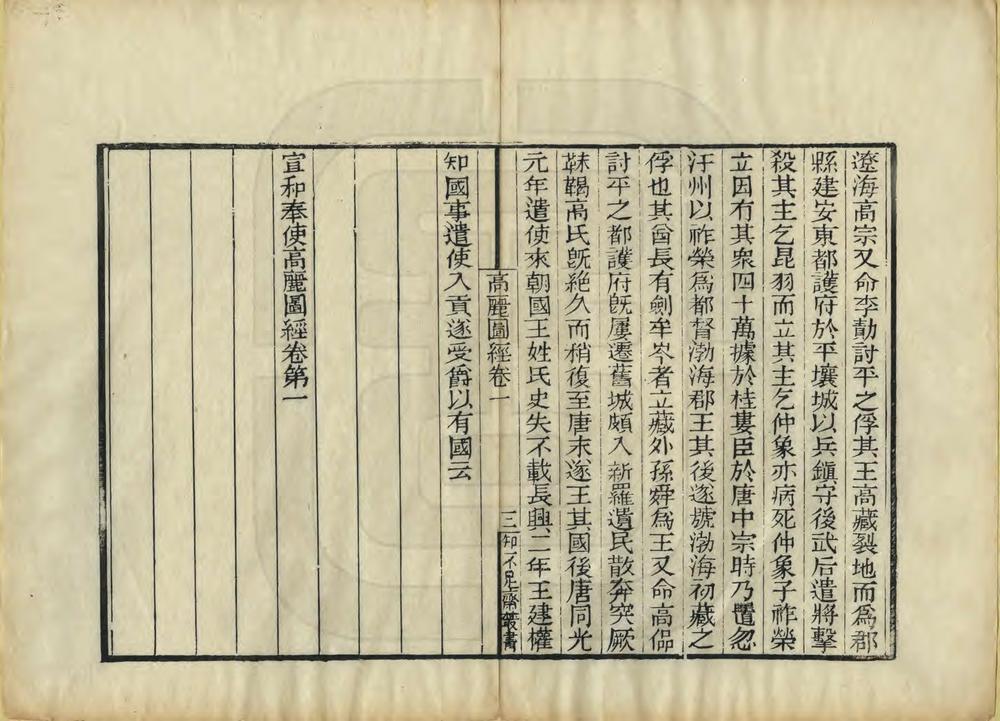 遼海高宗又命李勣討平之俘其王高藏裂地而爲郡
縣建安東都護府於平壤城以兵鎮守後武后遣將擊
殺其主乞昆羽而立其主乞仲象亦病死仲象子祚榮
立因有其衆四十萬據於桂婁臣於唐中宗時乃置忽
汗州以祚榮爲都督渤海郡王其後遂號渤海初藏之
俘也其酋長有劍牟岑者立藏外孫舜爲王又命高偘
討平之都護府旣屢遷舊城頗入新羅遺民散奔突厥
靺鞨高氏旣絶久而稍復至唐末遂王其國後唐同光
元年遣使來朝國王姓氏史失不載長興二年王建權
高麗圖經卷一
三
知不足齋叢書
知國事遣使入貢遂受爵以有國云
宣和奉使高麗圖經卷第一